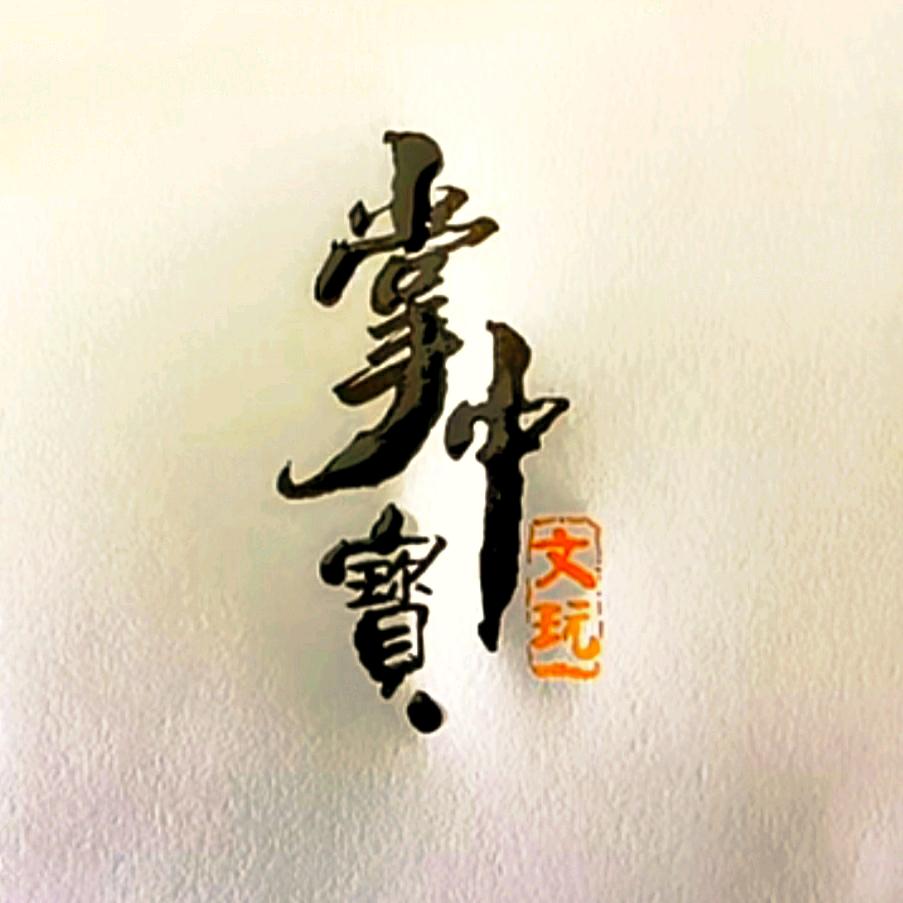 掌中寶
文玩